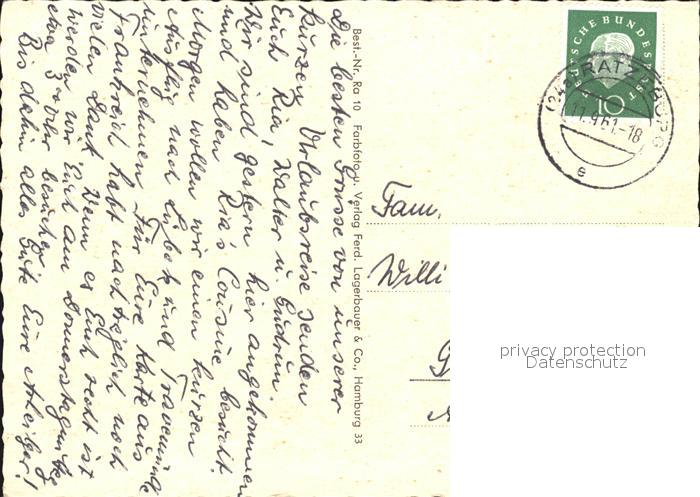 Die besten Grüsse von unserer
kurzen Urlaubsreise senden
Euch Ria, Walter u. Gudrun.
Wir sind gestern hier angekommen
und haben Ria's Cousine besucht.
Morgen wollen wir einen kurzen
Ausflug nach Lübeck und Travemünde
unternehmen. Für Eure Karte aus
Frankreich habt nachträglich noch
vielen Dank. Wenn es Euch recht ist
werden wir Euch am Donnerstag
3 Uhr besuchen.
Bis dahin alles Gute Eure
Best.-Nr. Ra 10 Farbfoto u. Verlag Ferd. Lagerbauer & Co., Hamburg 33
DEUTSCHE BUNDESPOST
10
(24a) RATZEBURG
11.9.61.-18
e
Fam.
Willi
G
privacy protection
Datenschutz